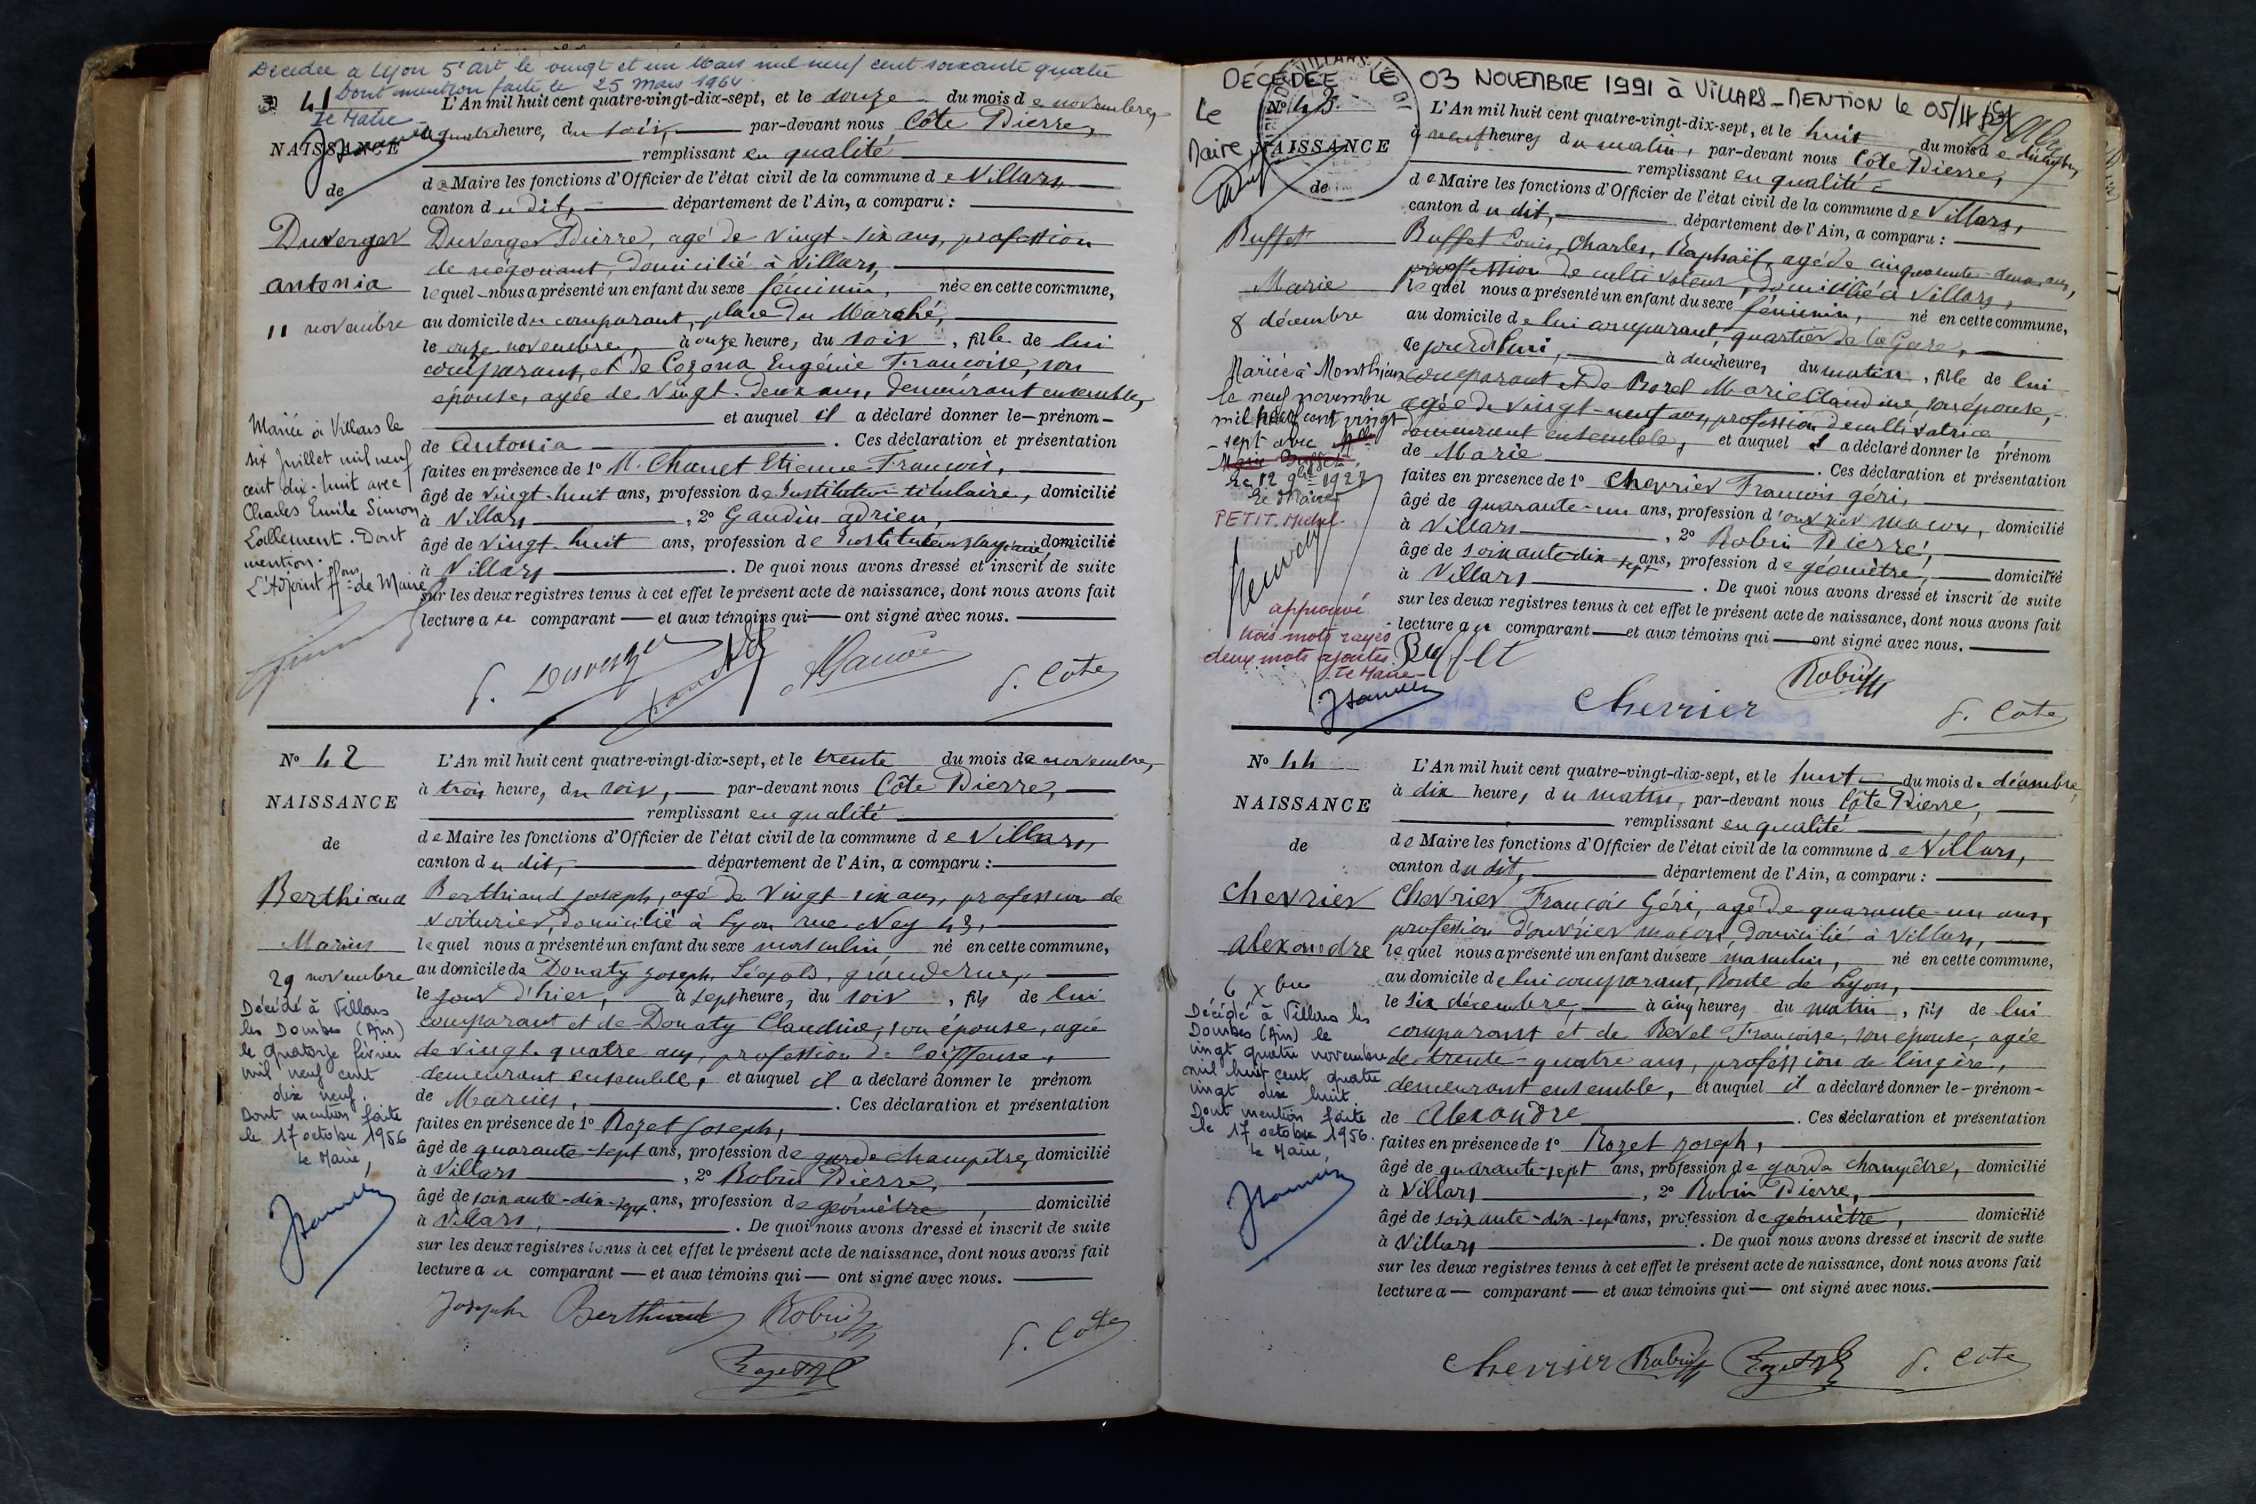 Décédée à Lyon 5e art le vingt et un Mars mil neuf cent soixante quatre
Dont mention faite le 25 mars 1964
Le Maire
41
NAISSANCE
de
Duverger
Antonia
11 novembre
Mariée à Villars le
six Juillet mil neuf
cent dix-huit avec
Charles Emile Simon
Lallement. Dont
mention.
L'Adjoint ff ons de Maire
L'An mil huit cent quatre-vingt-dix-sept, et le douze du mois de novembre,
à quatre heure, du soir, par-devant nous Côte Pierre,
remplissant en qualité
de Maire les fonctions d'Officier de l'état civil de la commune de Villars
canton du dit, département de l'Ain, a comparu :
Duverger Pierre, agé de vingt-six ans, profession
de négociant, domicilié à Villars,
lequel nous a présenté un enfant du sexe féminin, née en cette commune,
au domicile du comparant, place du Marché,
le onze novembre, à onze heure, du soir, fille de lui
comparant, et de Cozona Eugénie Françoise, son
épouse, agée de vingt-deux ans, demeurant ensemble,
et auquel il a déclaré donner le prénom
de Antonia. Ces déclaration et présentation
faites en présence de 1° M. Chanet Etienne François,
âgé de vingt-huit ans, profession de Instituteur titulaire, domicilié
à Villars, 2° Gaudin Adrien,
âgé de vingt-huit ans, profession de Instituteur stagiaire, domicilié
à Villars. De quoi nous avons dressé et inscrit de suite
sur les deux registres tenus à cet effet le présent acte de naissance, dont nous avons fait
lecture au comparant et aux témoins qui ont signé avec nous.
P. Duverger
P. Côte
N° 42
NAISSANCE
de
Berthiaud
Marius
29 novembre
Décédé à Villars
les Dombes (Ain)
le quatorze février
mil neuf cent
dix neuf.
Dont mention faite
le 17 octobre 1956
Le Maire,
L'An mil huit cent quatre-vingt-dix-sept, et le trente du mois de novembre,
à trois heure, du soir, par-devant nous Côte Pierre,
remplissant en qualité
de Maire les fonctions d'Officier de l'état civil de la commune de Villars,
canton du dit, département de l'Ain, a comparu :
Berthiaud Joseph, agé de vingt-six ans, profession de
voiturier, domicilié à Lyon rue Ney 43,
lequel nous a présenté un enfant du sexe masculin né en cette commune,
au domicile de Donaty Joseph Léopold, grande rue,
le jour d'hier, à sept heure, du soir, fils de lui
comparant et de Donaty Claudine, son épouse, agée
de vingt-quatre ans, profession de Coiffeuse,
demeurant ensemble, et auquel il a déclaré donner le prénom
de Marius. Ces déclaration et présentation
faites en présence de 1° Rozet Joseph,
âgé de quarante-sept ans, profession de garde champêtre, domicilié
à Villars, 2° Robin Pierre,
âgé de soixante-dix-sept ans, profession de géomètre, domicilié
à Villars. De quoi nous avons dressé et inscrit de suite
sur les deux registres tenus à cet effet le présent acte de naissance, dont nous avons fait
lecture au comparant et aux témoins qui ont signé avec nous.
Joseph Berthiaud Robin
Rozet
P. Côte
DÉCÉDÉE LE 03 NOVEMBRE 1991 à VILLARS-MENTION le 05/11/91
Le
Maire
N° 43
NAISSANCE
de
Buffet
Marie
8 décembre
Mariée à Monthieux
le neuf novembre
mil neuf cent vingt
-sept avec
Marie Buffet
Le 12 9bre 1927
Le Maire
PETIT. Michel
approuvé
trois mots rayés
deux mots ajoutés
Le Maire
L'An mil huit cent quatre-vingt-dix-sept, et le huit du mois de décembre,
à neuf heures du matin, par-devant nous Côte Pierre,
remplissant en qualité
de Maire les fonctions d'Officier de l'état civil de la commune de Villars,
canton du dit, département de l'Ain, a comparu :
Buffet Louis, Charles, Raphaël, agé de cinquante-deux ans,
profession de cultivateur, domicilié à Villars,
lequel nous a présenté un enfant du sexe féminin, né en cette commune,
au domicile de lui comparant, quartier de la Gare,
ce jourd'hui, à deux heures, du matin, fille de lui
comparant et de Borel Marie Claudine, son épouse,
agée de vingt-neuf ans, profession de cultivatrice
demeurant ensemble, et auquel il a déclaré donner le prénom
de Marie. Ces déclaration et présentation
faites en presence de 1° Chevrier François géri,
âgé de quarante-un ans, profession d'ouvrier maçon, domicilié
à Villars, 2° Robin Pierre,
âgé de soixante-dix-sept ans, profession de géomètre, domicilié
à Villars. De quoi nous avons dressé et inscrit de suite
sur les deux registres tenus à cet effet le présent acte de naissance, dont nous avons fait
lecture au comparant et aux témoins qui ont signé avec nous.
Buffet
Chevrier
Robin
P. Côte
N° 44
NAISSANCE
de
Chevrier
Alexandre
6 Xbre
Décédé à Villars les
Dombes (Ain) le
vingt quatre novembre
mil huit cent quatre
vingt dix huit
Dont mention faite
le 17 octobre 1956.
Le Maire,
L'An mil huit cent quatre-vingt-dix-sept, et le huit du mois de décembre,
à dix heure, du matin, par-devant nous Côte Pierre,
remplissant en qualité
de Maire les fonctions d'Officier de l'état civil de la commune de Villars,
canton du dit, département de l'Ain, a comparu :
Chevrier François Géri, agé de quarante-un ans,
profession d'ouvrier maçon, domicilié à Villars,
lequel nous a présenté un enfant du sexe masculin, né en cette commune,
au domicile de lui comparant, Route de Lyon,
le six décembre, à cinq heure, du matin, fils de lui
comparant et de Revel Françoise, son épouse, agée
de trente-quatre ans, profession de lingère,
demeurant ensemble, et auquel il a déclaré donner le prénom
de Alexandre. Ces déclaration et présentation
faites en présence de 1° Rozet Joseph,
âgé de quarante-sept ans, profession de garde champêtre, domicilié
à Villars, 2° Robin Pierre,
âgé de soixante-dix-sept ans, profession de géomètre, domicilié
à Villars. De quoi nous avons dressé et inscrit de suite
sur les deux registres tenus à cet effet le présent acte de naissance, dont nous avons fait
lecture a comparant et aux témoins qui ont signé avec nous.
Chevrier Robin Rozet P. Côte